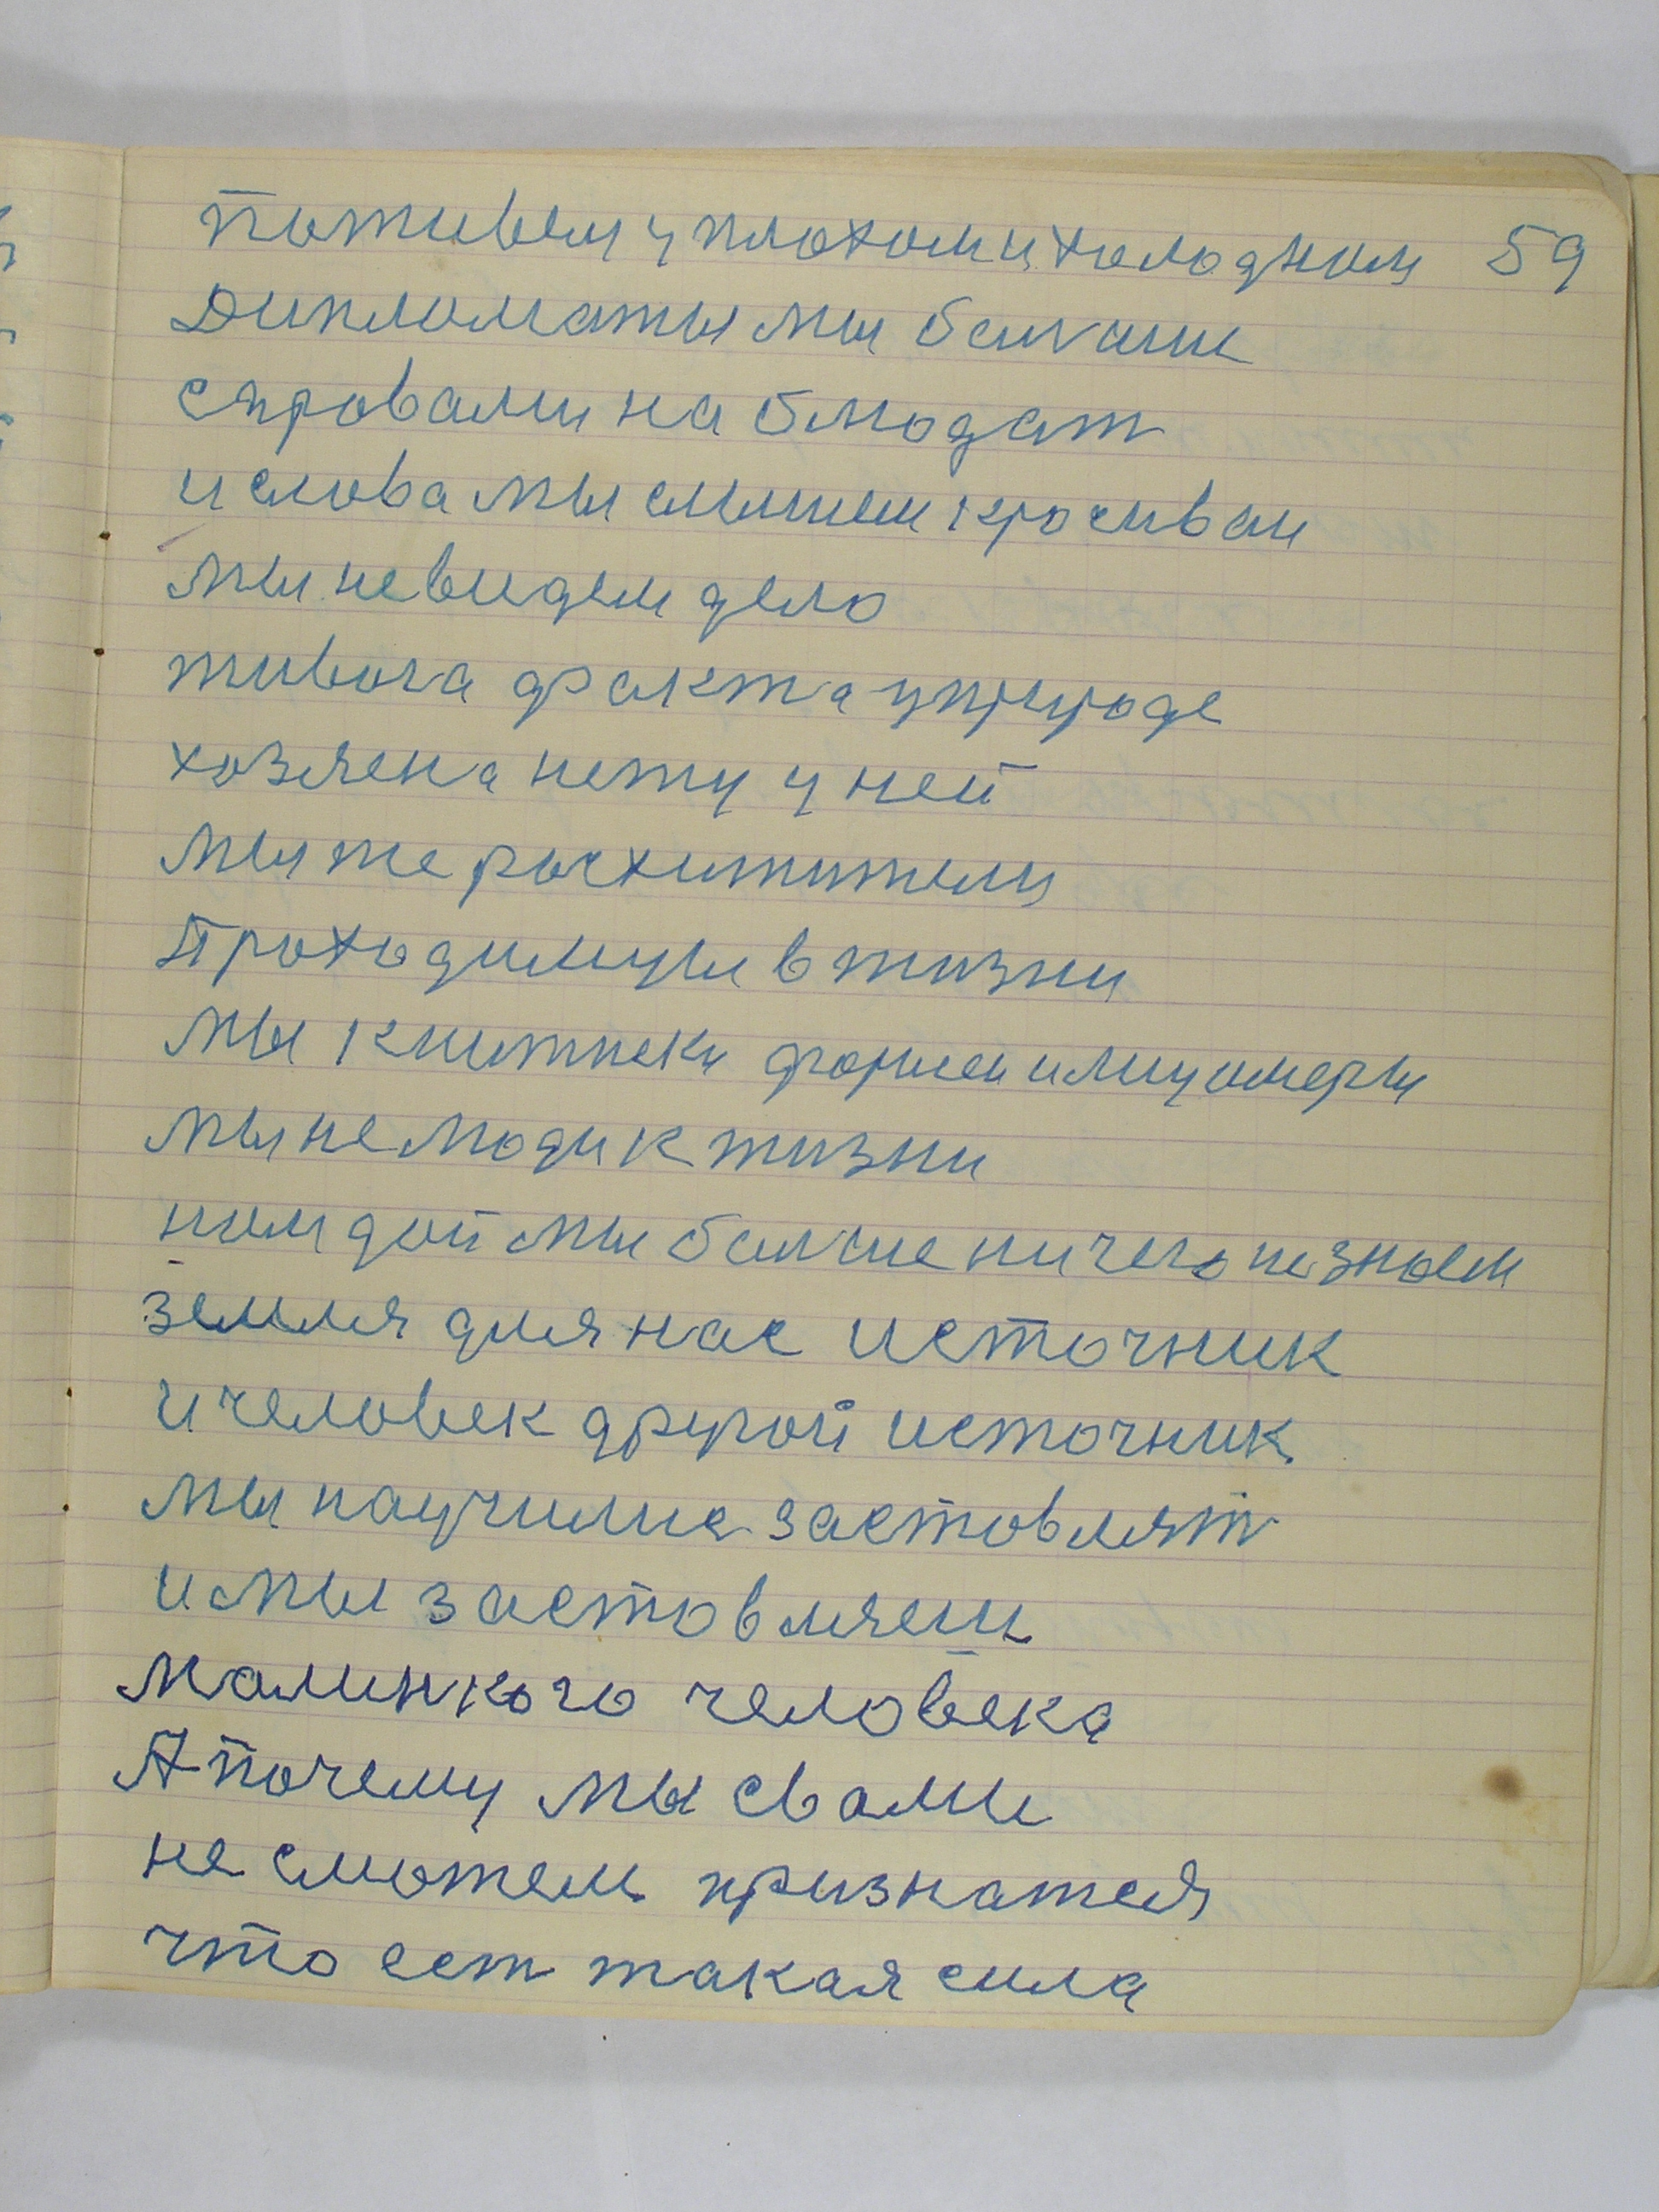 поживем у плохом и холодном 59
Дипломаты мы болшие
с правами на блюдат
и слова мы слышем кросиваи
мы невидем дело
живога факта уприроде
хозяена нету у ней
мы же росхитители
Проходимци в жизни
мы книжнеки формы и лицомеры
мы не люди к жизни
ном дои мы болше ничего не знаем
земля для нас источник
и человек другой источник
мы научилис застовлят
и мы застовляем
малинкого человека
А почему мы свами
не сможем признатся
что ест такая сила